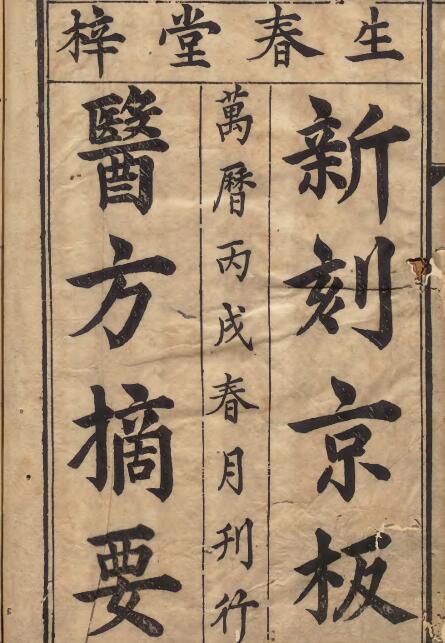 生春堂梓
新刻京板
萬曆丙戌春月刊行
醫方摘要